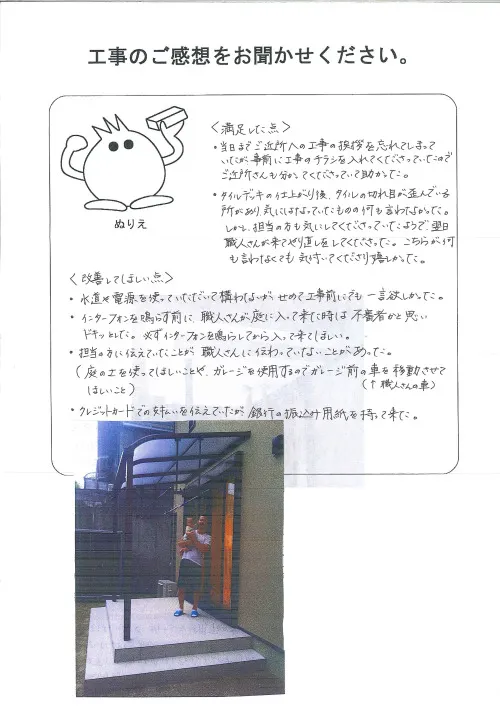 工事のご感想をお聞かせください。
ぬりえ
〈満足した点〉
・当日までご近所への工事の挨拶を忘れてしまって
いたが事前に工事のチラシを入れてくださっていたので
ご近所さんも分かってくださっていて助かった。
・タイルデッキの仕上がり後、タイルの切れ目が歪んでいる
所があり、気にはなっていたものの何も言わなかった。
しかし、担当の方も気にしてくださっていたようで翌日
職人さんが来てやり直しをしてくださった。こちらが何
も言わなくても気付いてくださり嬉しかった。
〈改善してほしい点〉
・水道や電源を使っていただいて構わないが、せめて工事前にでも一言欲しかった。
・インターフォンを鳴らす前に、職人さんが庭に入って来た時は不審者かと思い
ドキッとした。必ずインターフォンを鳴らしてから入って来てほしい。
・担当の方に伝えていたことが職人さんに伝わっていないことがあった。
(庭の土を使ってほしいことや、ガレージを使用するのでガレージ前の車を移動させて
ほしいこと)
(↑職人さんの車)
・クレジットカードでの支払いを伝えていたが銀行の振込み用紙を持って来た。